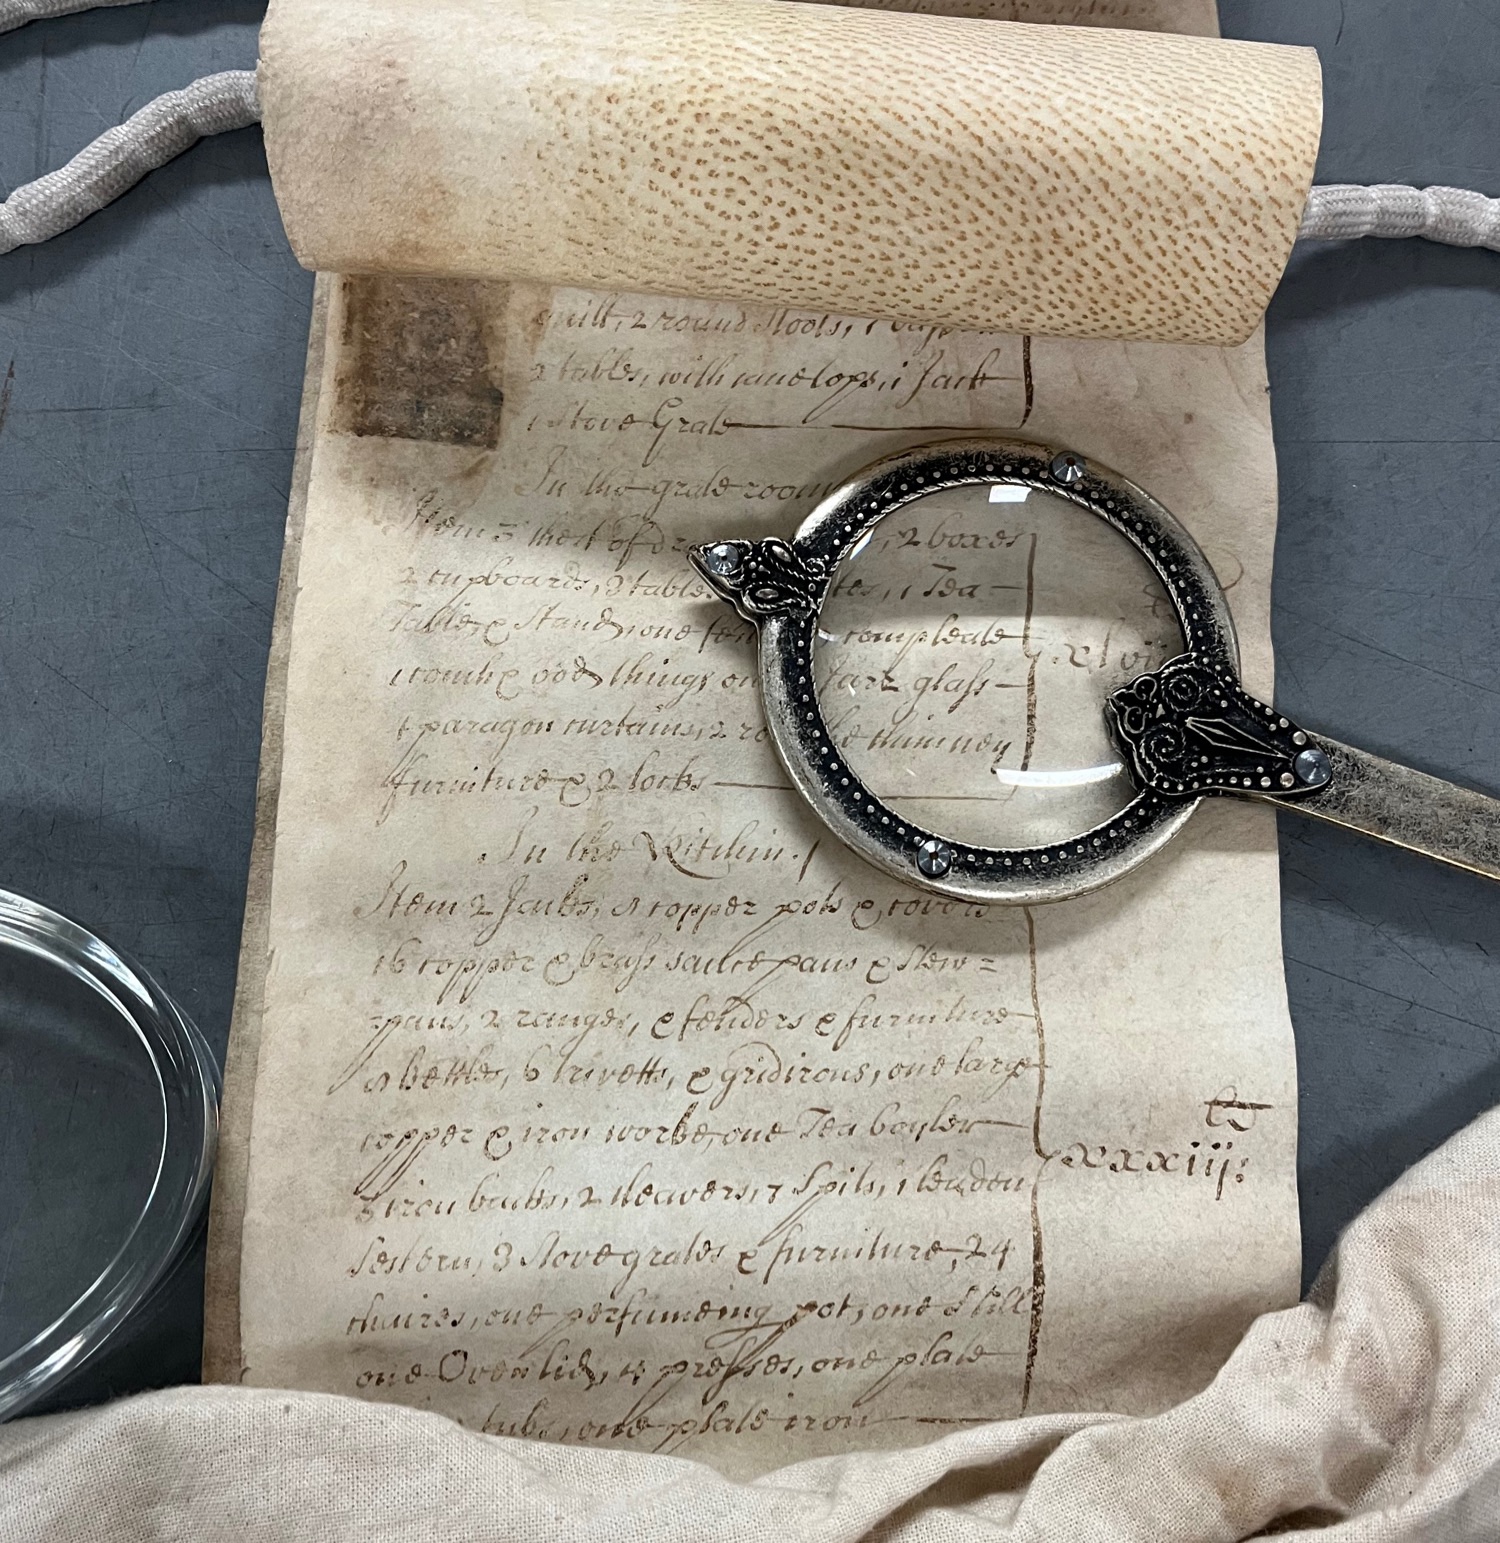 quilt, 2 round stools, 1
2 tables, with cane tops, 1 Jack
1 Stove Grate
In the grate room
Item 3 chest of 2 boxes
2 cupboards, 3 table 1 Tea
Table, & Stand, one compleate
1 comb & odd things glass
paragon curtains, 2 chimney
furniture & 2 locks
xlvii
In the Kitchin.
Item 2 Jacks, 9 copper pots & covers
16 copper & brass sauce pans & stew=
=pans, 2 ranges, & fenders & furniture
9 kettles, 6 trivetts, & gridirons, one large
copper & iron worke, one Tea boyler
3 iron backs, 2 cleavers, 7 Spits, 1 leaden
Sestern, 3 stove grates & furniture, 24
chaires, one perfumeing pot, one Still
one Oven lid, 4 presses, one plate
tubs, one plate iron
xxxiij: